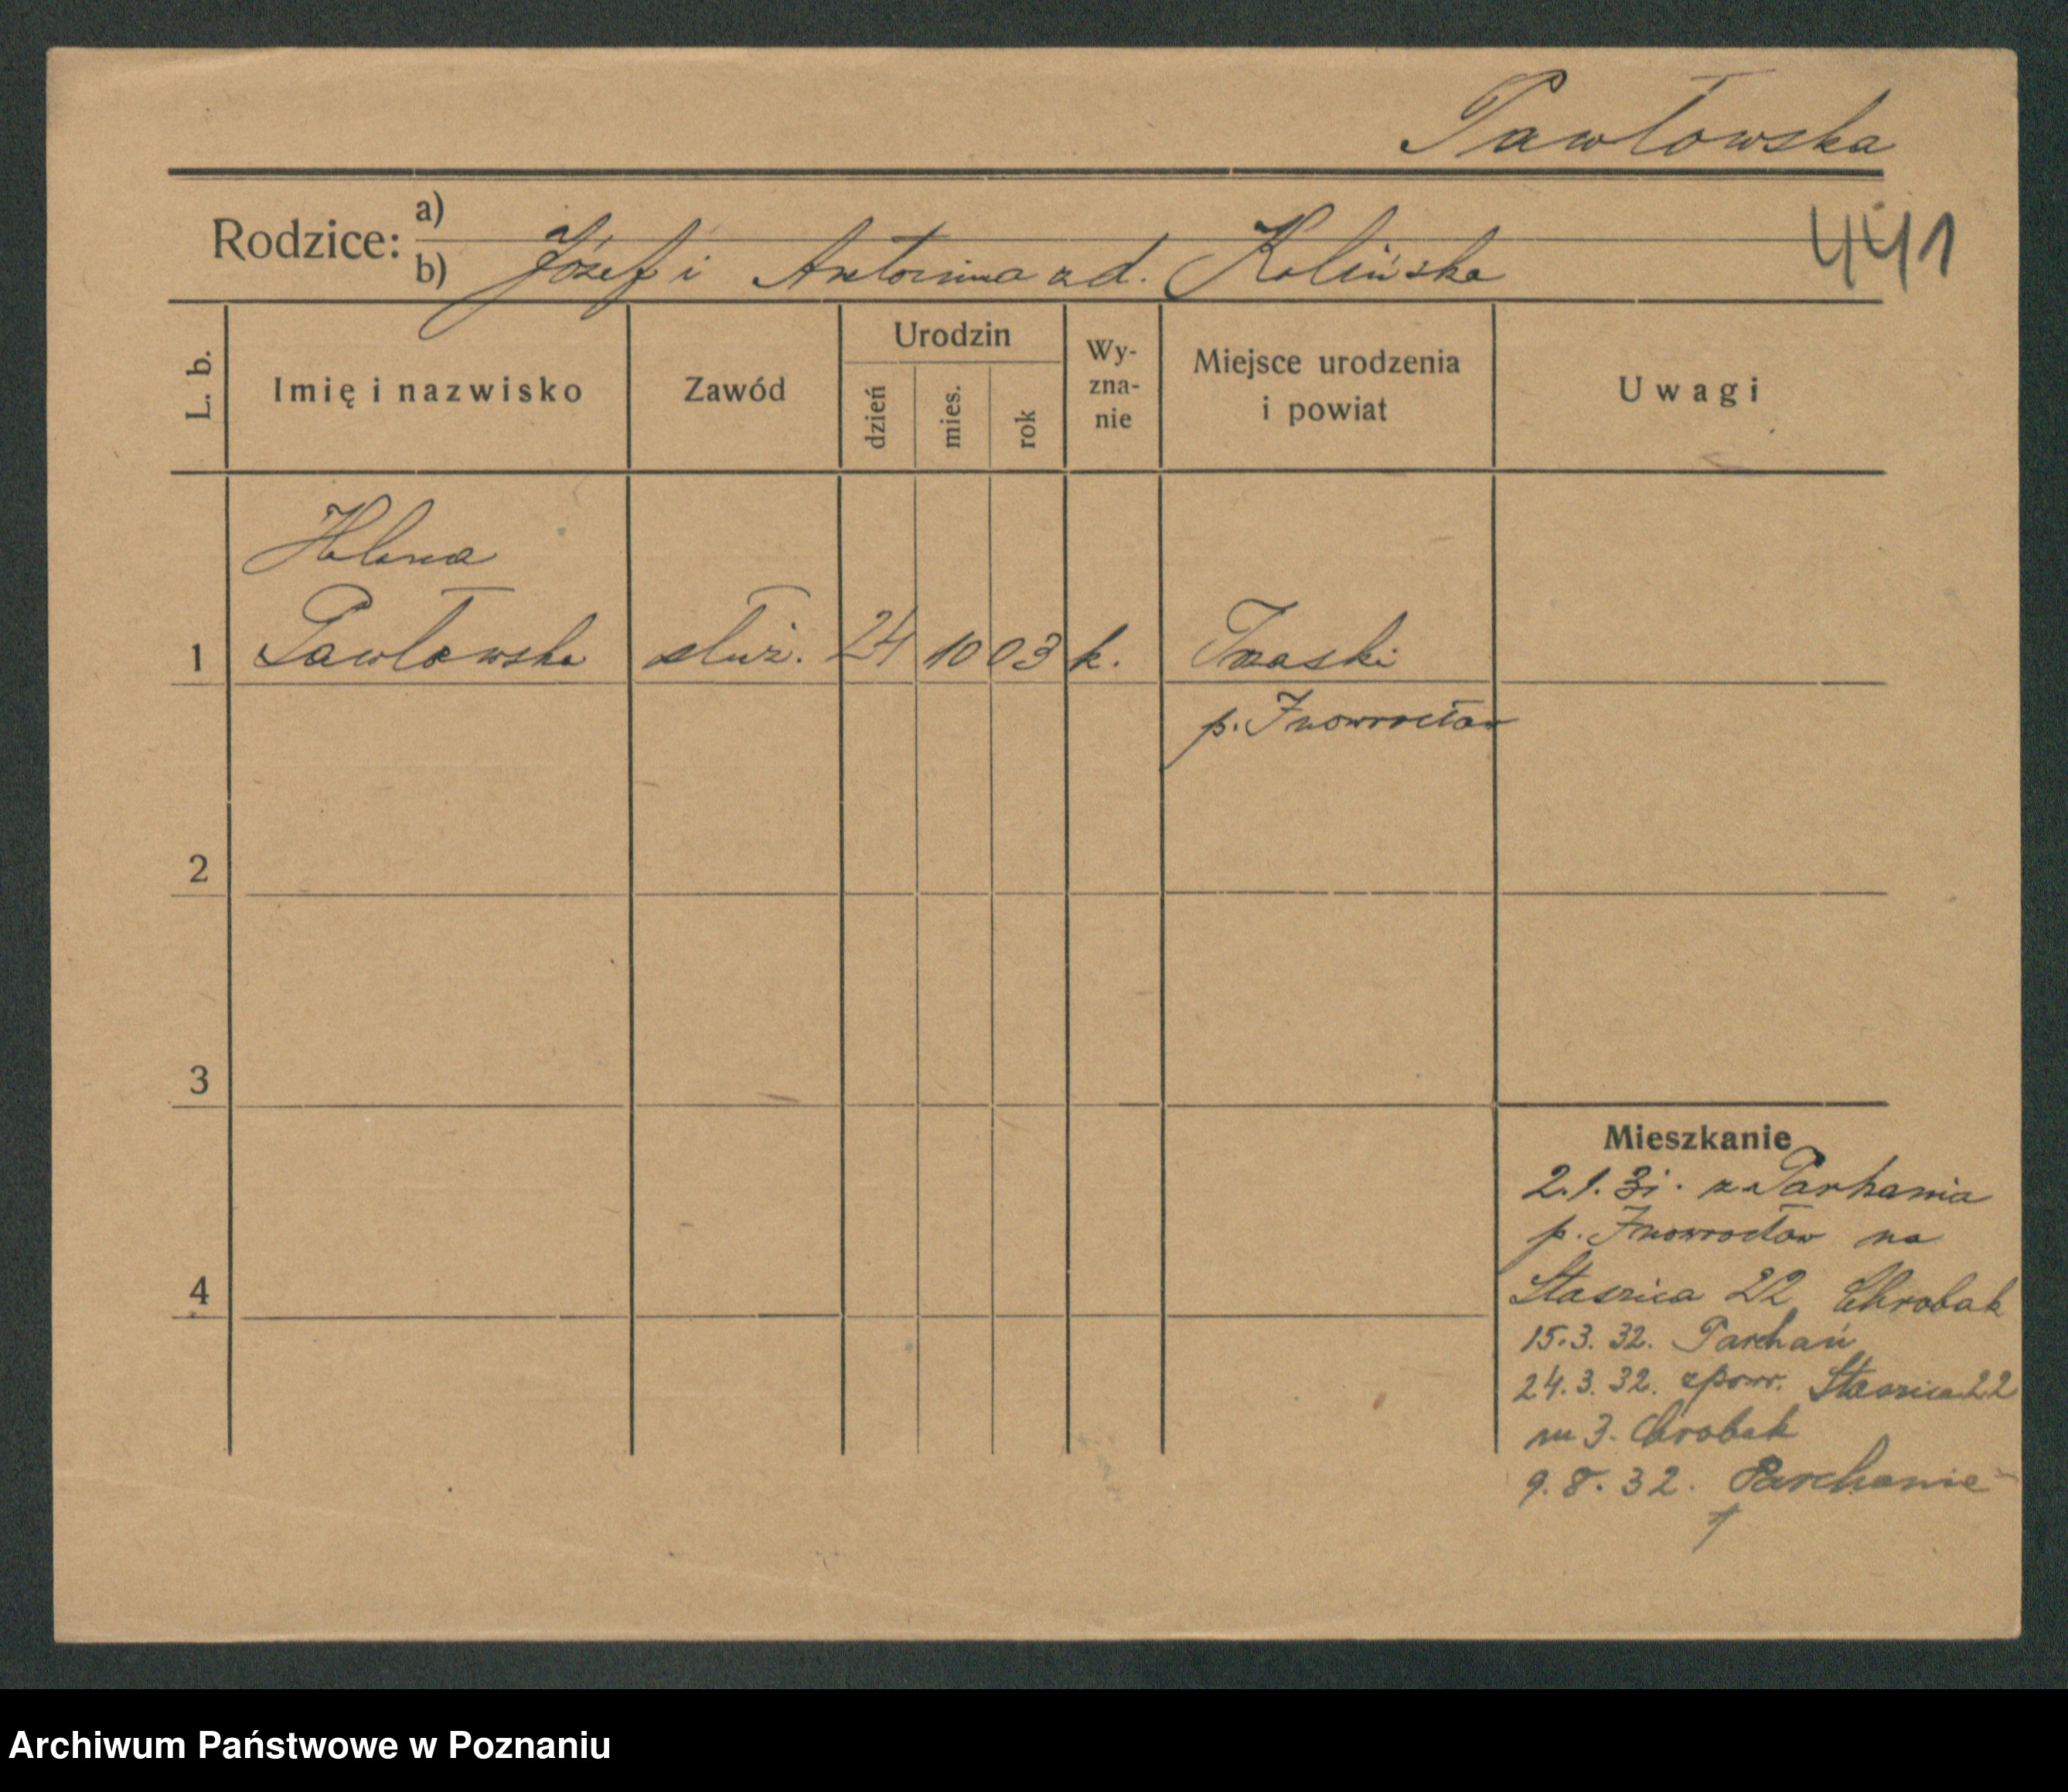 Pawłowska
441
Rodzice: a)
b) Józef i Antonina zd. Kolińska
L. b.
Imię i nazwisko
Zawód
Urodzin
dzień
mies.
rok
Wy-
zna-
nie
Miejsce urodzenia
i powiat
Uwagi
Helena
1 Pawłowska służ. 24 10 03 k.
p. Inowrocław
2
3
4
Mieszkanie
2.1.31. z Parhania
p. Inowrocław na
Staszica 22 Chrobak
15.3.32. Parchań
24.3.32. zpow. Staszica 22
m 3. Chrobak
9.8.32. Parchanie
Archiwum Państwowe w Poznaniu